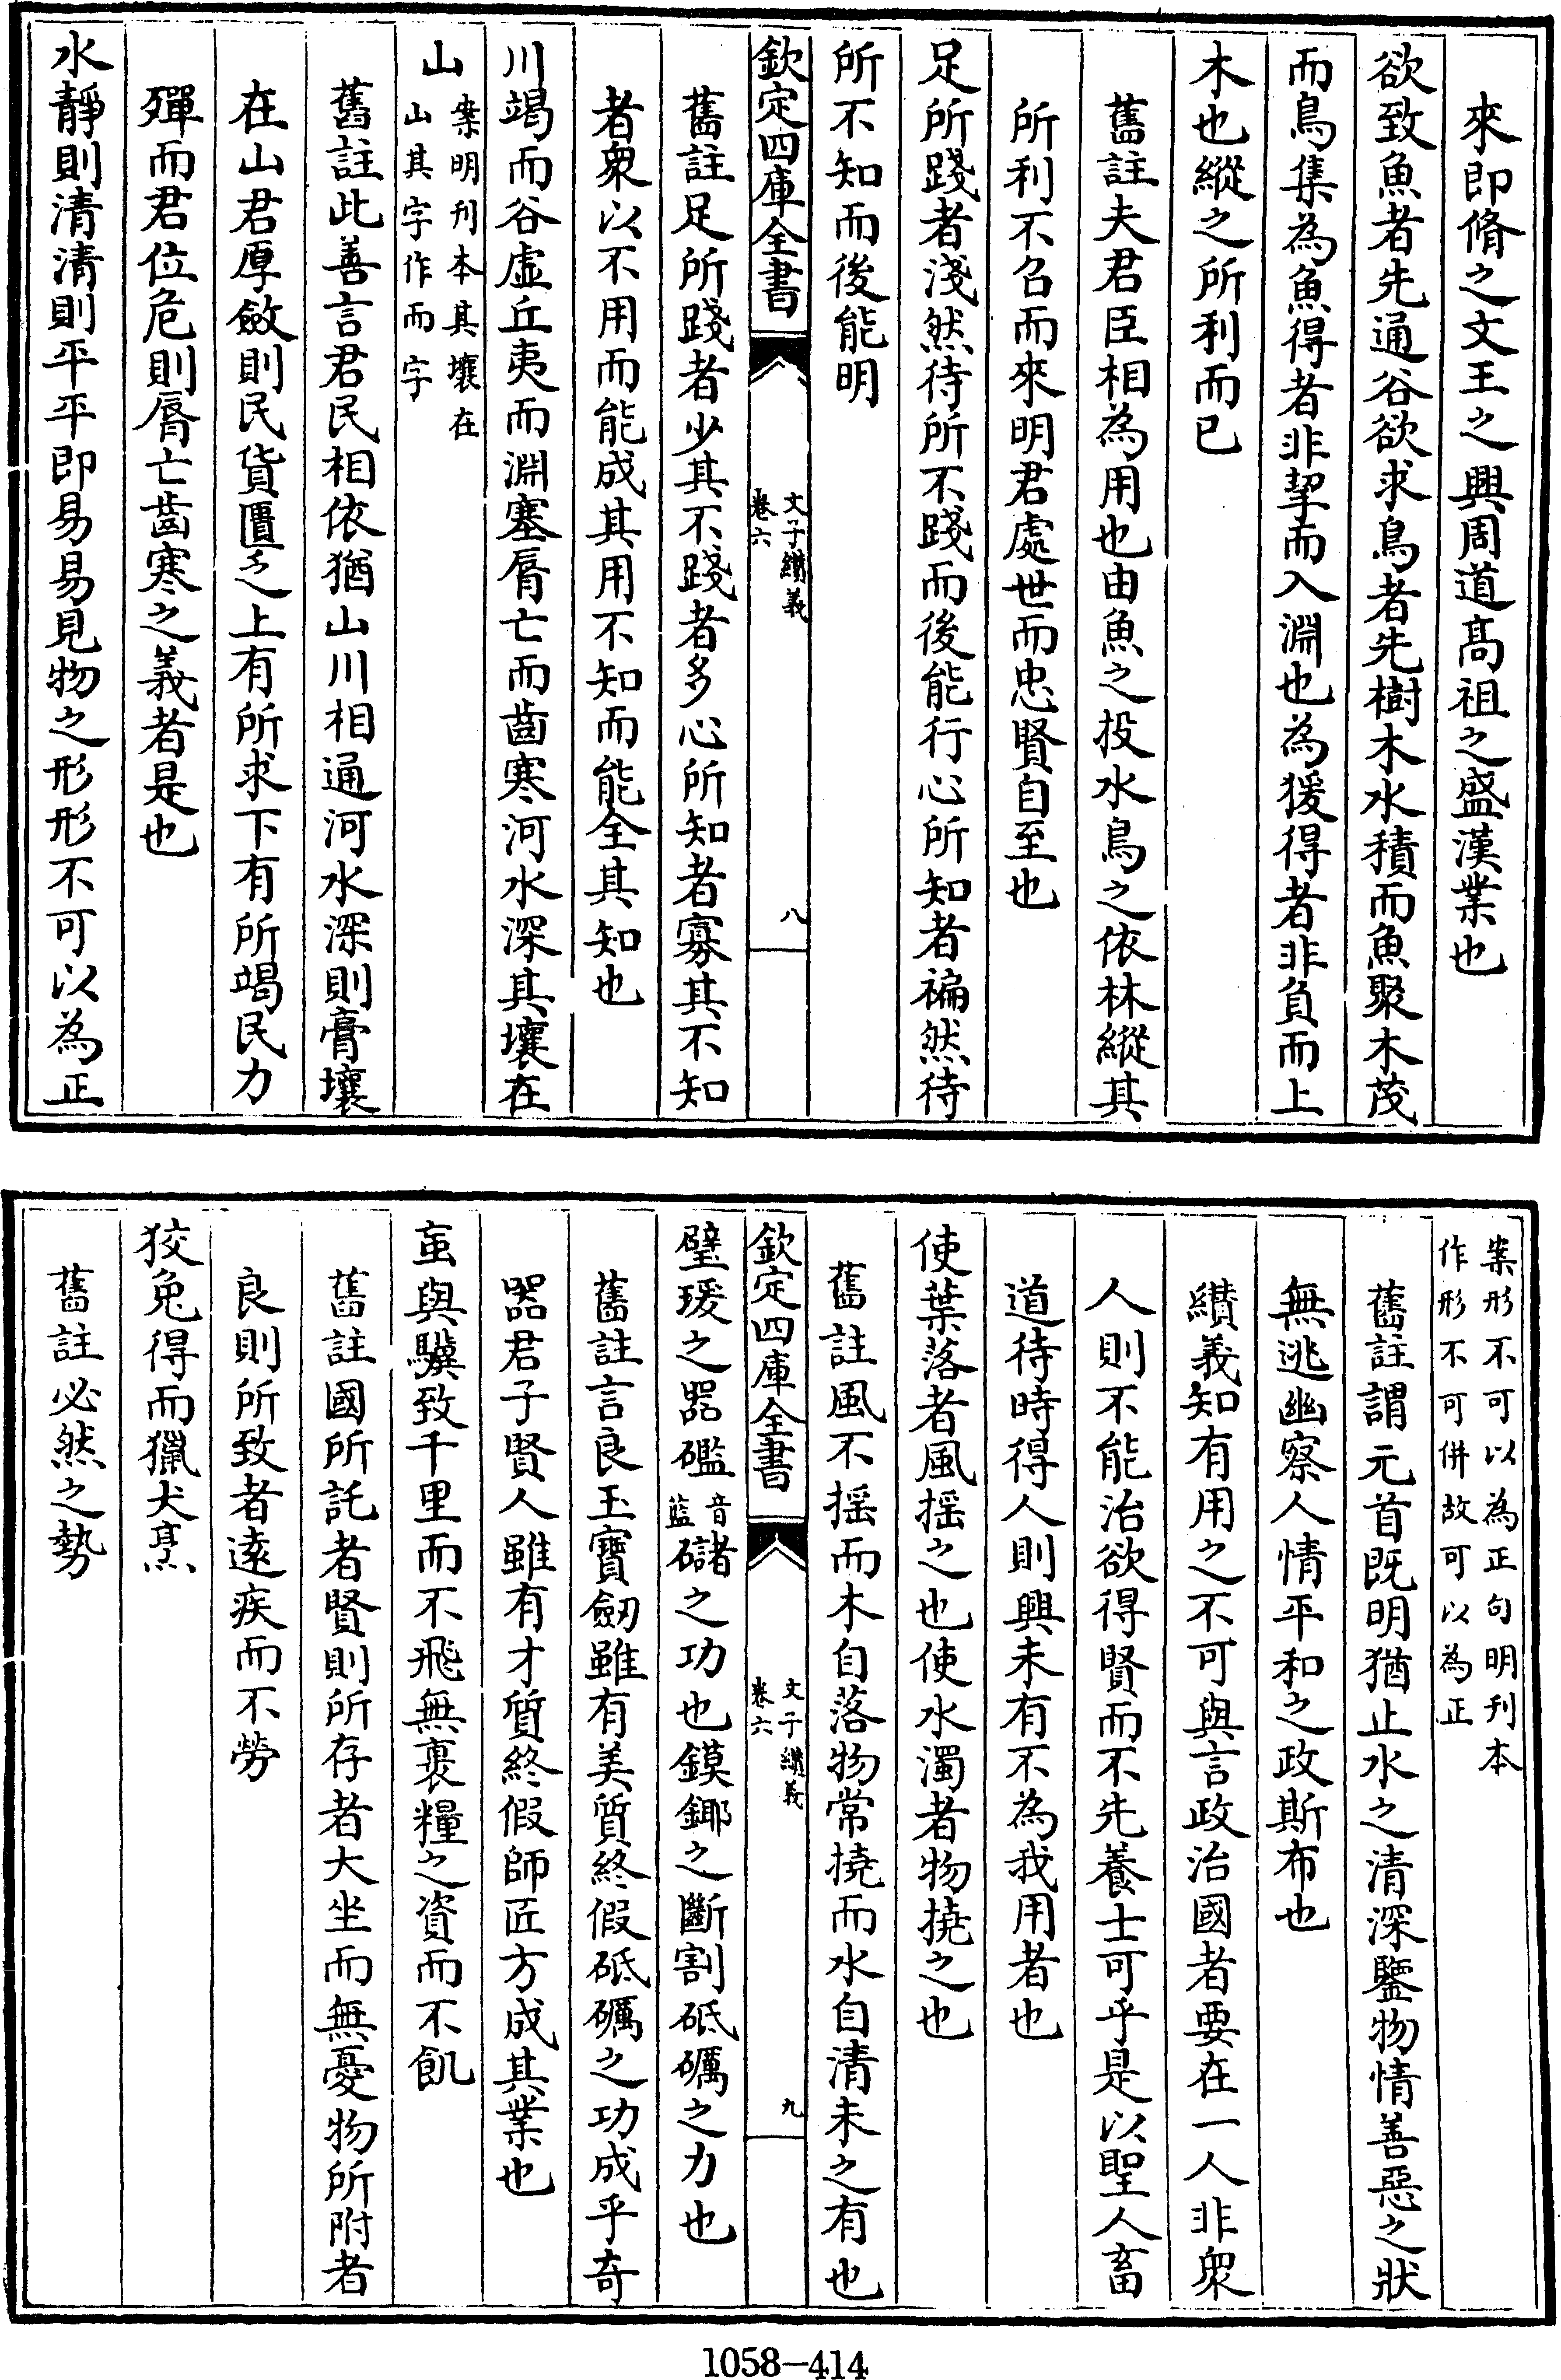 來即脩之文王之興周道髙祖之盛漢業也
欲致魚者先通谷欲求鳥者先樹木水積而魚聚木茂
而鳥集為魚得者非挈而入淵也為猨得者非負而上
木也縱之所利而已
舊註夫君臣相為用也由魚之投水鳥之依林縱其
所利不召而來明君處世而忠賢自至也
足所踐者淺然待所不踐而後能行心所知者褊然待
所不知而後能明
欽定四庫全書
文子纘義
卷六
八
舊註足所踐者少其不踐者多心所知者寡其不知
者衆以不用而能成其用不知而能全其知也
川竭而谷虛丘夷而淵塞脣亡而齒寒河水深其壤在
山
案明刋本其壤在
山其字作而字
舊註此善言君民相依猶山川相通河水深則膏壤
在山君厚斂則民貨匱乏上有所求下有所竭民力
殫而君位危則脣亡齒寒之義者是也
水靜則清清則平平即易易見物之形形不可以為正
案形不可以為正句明刋本
作形不可併故可以為正
舊註謂元首既明猶止水之清深鑒物情善惡之狀
無逃幽察人情平和之政斯布也
纘義知有用之不可與言政治國者要在一人非衆
人則不能治欲得賢而不先養士可乎是以聖人畜
道待時得人則興未有不為我用者也
使葉落者風揺之也使水濁者物撓之也
舊註風不揺而木自落物常撓而水自清未之有也
欽定四庫全書
文子纘義
卷六
九
璧瑗之器礛
音
藍
䃴之功也鏌鋣之斷割砥礪之力也
舊註言良玉寶劒雖有美質終假砥礪之功成乎奇
器君子賢人雖有才質終假師匠方成其業也
䖟與驥致千里而不飛無裹糧之資而不飢
舊註國所託者賢則所存者大坐而無憂物所附者
良則所致者逺疾而不勞
狡兔得而獵犬烹
舊註必然之勢
1058-414